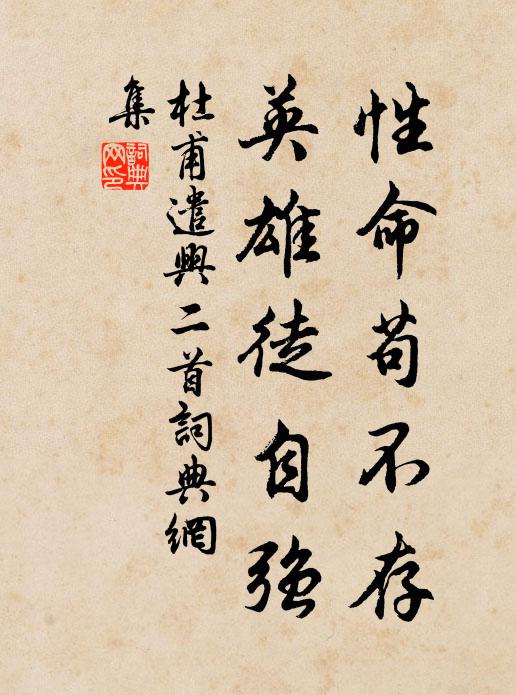 性命苟不存
英雄徒自強
杜甫遣興二首詞典網
集
詞典
網印